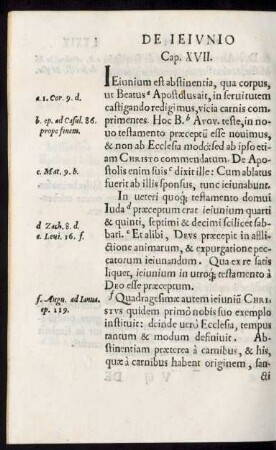 DE IEIVNIO
Cap. XVII.
IEiunium est abstinentia, qua corpus,
ut Beatus ᵃ Apostolus ait, in seruitutem
castigando redigimus, vicia carnis com
primentes. Hoc B. ᵇ Avgv. teste, in no
uo testamento præceptũ esse nouimus,
& non ab Ecclesia modò sed ab ipso eti
am CHRISTO commendatum. De Apo
stolis enim suis ᶜ dixit ille: Cum ablatus
fuerit ab illis sponsus, tunc ieiunabunt.
In ueteri quoq; testamento domui
Iuda ᵈ præceptum erat ieiunium quarti
& quinti, septimi & decimi scilicet sab-
bati. ᵉ Et alibi, DEVS præcepit in affli-
ctione animarum, & expurgatione pec-
catorum ieiunandum. Qua ex re satis
liquet, ieiunium in utroq; testamento à
DEO esse præceptum.
ᶠ Quadragesimæ autem ieiuniũ CHRI
STVS quidem primò nobis suo exemplo
instituit: deinde uerò Ecclesia, tempus
tantum & modum definiuit. Ab-
stinentiam præterea à carnibus, & his,
quæ à carnibus habent originem, san-
cti
a. 1. Cor. 9. d.
b. ep. ad Casul. 86.
prope finem.
c. Mat. 9. b.
d Zach. 8. d.
e. Leui. 16. f.
f. Augu. ad Ianua.
ep. 119.